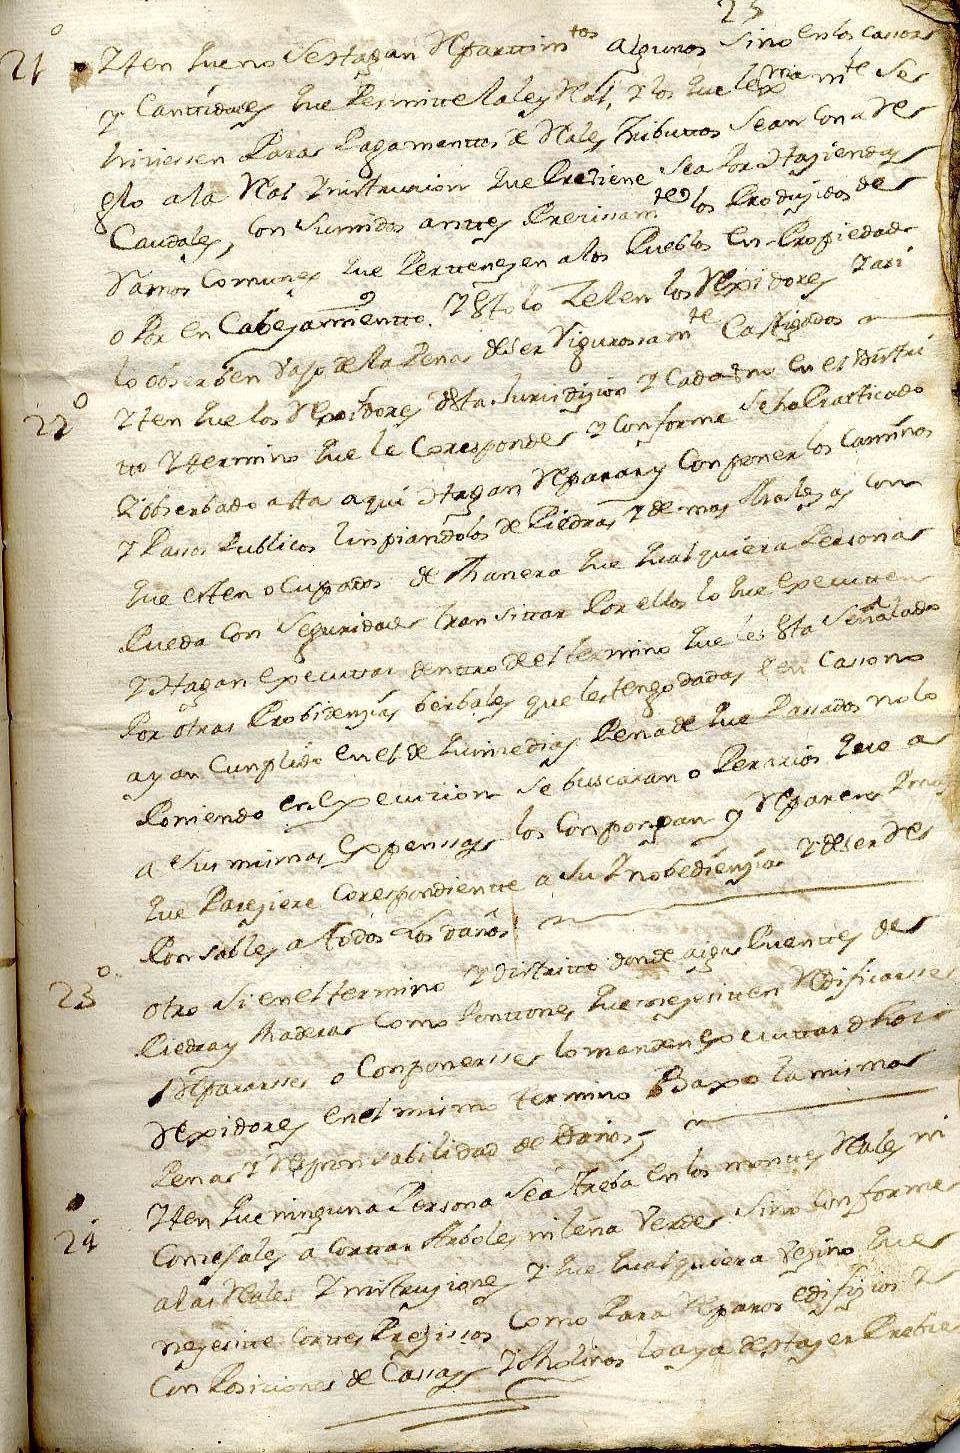 23
21º Yten que no se hagan Repartim.tos algunos sino en los cassos
y Cantidades que Permite la ley Rl, y los que lexmam.te se
hiziessen Paras Pagamentos de Rales Tributtos Sean con a Re
glo a la Rl Ynstrucion que Previene sea Por Haziendas
Caudales, Consumidos antes Precisam.te los Produzidos de
Ramos Comunes que Pertenezen a los Pueblos en Propiedad
o Por en Cabezamiento. Y Esto lo Zelen los Rexidores Y asi
lo obserben vajo de la Pena de ser Rigurossam.te Castigados
22º Yten que los Rexidores desta Jurisdizion Y Cada uno en el distri
tto Y termino que le Coresponde Y Conforme se ha Practicado
Y obserbado asta aqui Hagan Reparar y Componer los Caminos
Y Passos Publicos linpiandolos de Piedras Y de mas Malezas con
que esten ocupados de Manera que qualquiera Personas
Pueda con Seguridad transittar Por ellos lo que Executten
Y Hagan Executtar dentro de el termino que les Esta Señalado
Por otras Probidenzias berbales que les tengo dadas Y en Casso no
ayan Cunplido en el de quinze dias Pena de que Passados no lo
Poniendo en Execucion se buscaran o Perarios que a
a Sus mismas Expenssas los Conpongan y Reparen
que Pareziere Corespondiente a Su Ynobedienzia Y de ser Res
Ponsables a todos los daños
23º Otro Si en el termino Y districtto donde aiga Puentes de
Piedra y Madera como Pontones que nezesiten Redificarsse
Repararsse o Componersse lo manden Executtar dhos
Rexidores en el mismo termino Baxo la misma
Pena Y Responsabilidad de Daños
24 Yten que ninguna Persona Se atreba en los montes Rales ni
Conzejales a Corttar Arboles ni leña Verde Sino conforme
a las Rales Ynstruziones Y que qualquiera vezino que
nezesite Cortes Prezissos Como Para Reparos edifizios Y
Con Posiciones de Cassas Y Molinos lo aya de Hazer Prebie